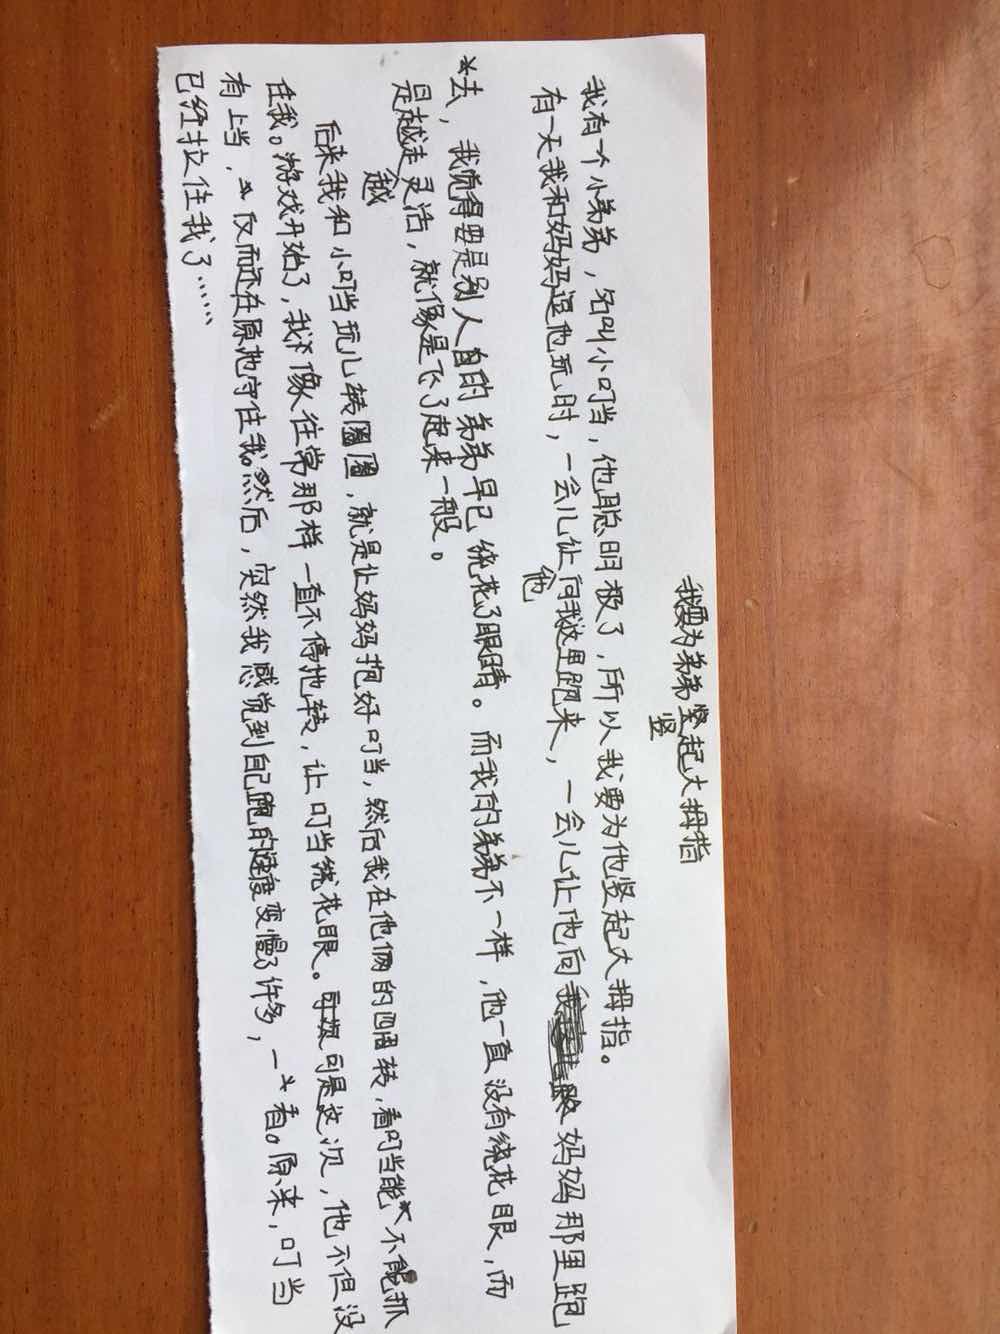 我要为弟弟竖起大拇指
竖
我有个小弟弟，名叫小叮当，他聪明极了，所以我要为他竖起大拇指。
有一天我和妈妈逗他玩时，一会儿让向我这里跑来，一会儿让他向妈妈那里跑
他
去，我觉得要是别人的弟弟早已绕花了眼睛。而我的弟弟不一样，他一直没有绕花眼，而
是越走灵活，就像是飞了起来一般。
越
后来我和小叮当玩儿转圈圈，就是让妈妈抱好叮当，然后我在他俩的四周转，看叮当能不能抓
住我。游戏开始了，我像往常那样一直不停地转，让叮当绕花眼。可是这次，他不但没
有上当，反而还在原地守住我。然后，突然我感觉到自己跑的速度变慢了许多，一看。原来，叮当
已经拉住我了……